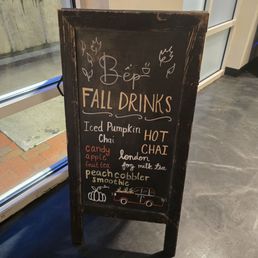 Bếp
FALL DRINKS
Iced Pumpkin
Chai
HOT
CHAI
candy
apple
fruit tea
london
fog milk tea
peach cobbler
smoothie